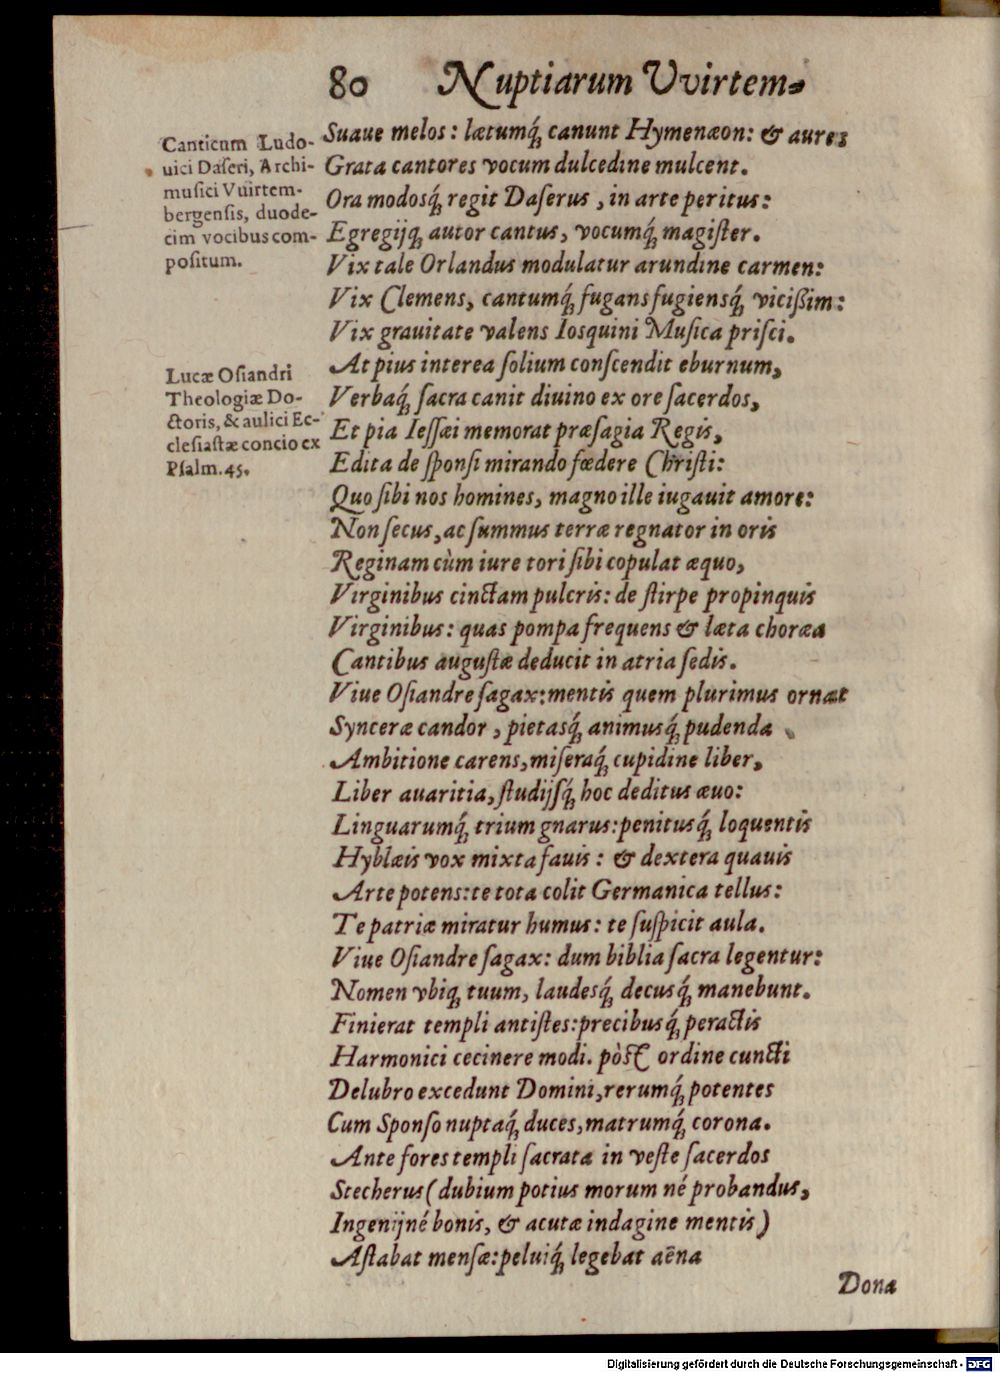 80 Nuptiarum Vvirtem-
Canticum Ludo-
uici Daſeri, Archi-
muſici Vuirtem-
bergenſis, duode-
cim vocibus com-
poſitum.
Suaue melos: lætumq́ꝫ canunt Hymenæon: & aures
Grata cantores vocum dulcedine mulcent.
Ora modosq́ꝫ regit Daſerus, in arte peritus:
Egregijqꝫ autor cantus, vocumq́ꝫ magiſter.
Vix tale Orlandus modulatur arundine carmen:
Vix Clemens, cantumq́ꝫ fugans fugiensq́ꝫ vicißim:
Vix grauitate valens Iosquini Muſica priſci.
Lucæ Oſiandri
Theologiæ Do-
ctoris, & aulici Ec-
cleſiaſtæ concio ex
Pſalm. 45.
At pius interea ſolium conſcendit eburnum,
Verbaq́ꝫ ſacra canit diuino ex ore ſacerdos,
Et pia Ieſſæi memorat præſagia Regis,
Edita de ſponſi mirando fœdere Chriſti:
Quo ſibi nos homines, magno ille iugauit amore:
Non ſecus, ac ſummus terræ regnator in oris
Reginam cùm iure tori ſibi copulat æquo,
Virginibus cinctam pulcris: de ſtirpe propinquis
Virginibus: quas pompa frequens & læta choræa
Cantibus auguſtæ deducit in atria ſedis.
Viue Oſiandre ſagax: mentis quem plurimus ornat
Synceræ candor, pietasq́ꝫ animusq́ꝫ pudenda
Ambitione carens, miſeraq́ꝫ cupidine liber,
Liber auaritia, ſtudijſq́ꝫ hoc deditus æuo:
Linguarumq́ꝫ trium gnarus: penitusq́ꝫ loquentis
Hyblæis vox mixta fauis: & dextera quauis
Arte potens: te tota colit Germanica tellus:
Te patriæ miratur humus: te ſuſpicit aula.
Viue Oſiandre ſagax: dum biblia ſacra legentur:
Nomen vbiqꝫ tuum, laudesq́ꝫ decusq́ꝫ manebunt.
Finierat templi antiſtes: precibusq́ꝫ peractis
Harmonici cecinere modi. pòſt ordine cuncti
Delubro excedunt Domini, rerumq́ꝫ potentes
Cum Sponſo nuptaq́ꝫ duces, matrumq́ꝫ corona.
Ante fores templi ſacrata in veſte ſacerdos
Stecherus (dubium potius morum né probandus,
Ingenijné bonis, & acutæ indagine mentis)
Aſtabat menſæ: peluiq́ꝫ legebat aēna
Dona
Digitalisierung gefördert durch die Deutsche Forschungsgemeinschaft - DFG